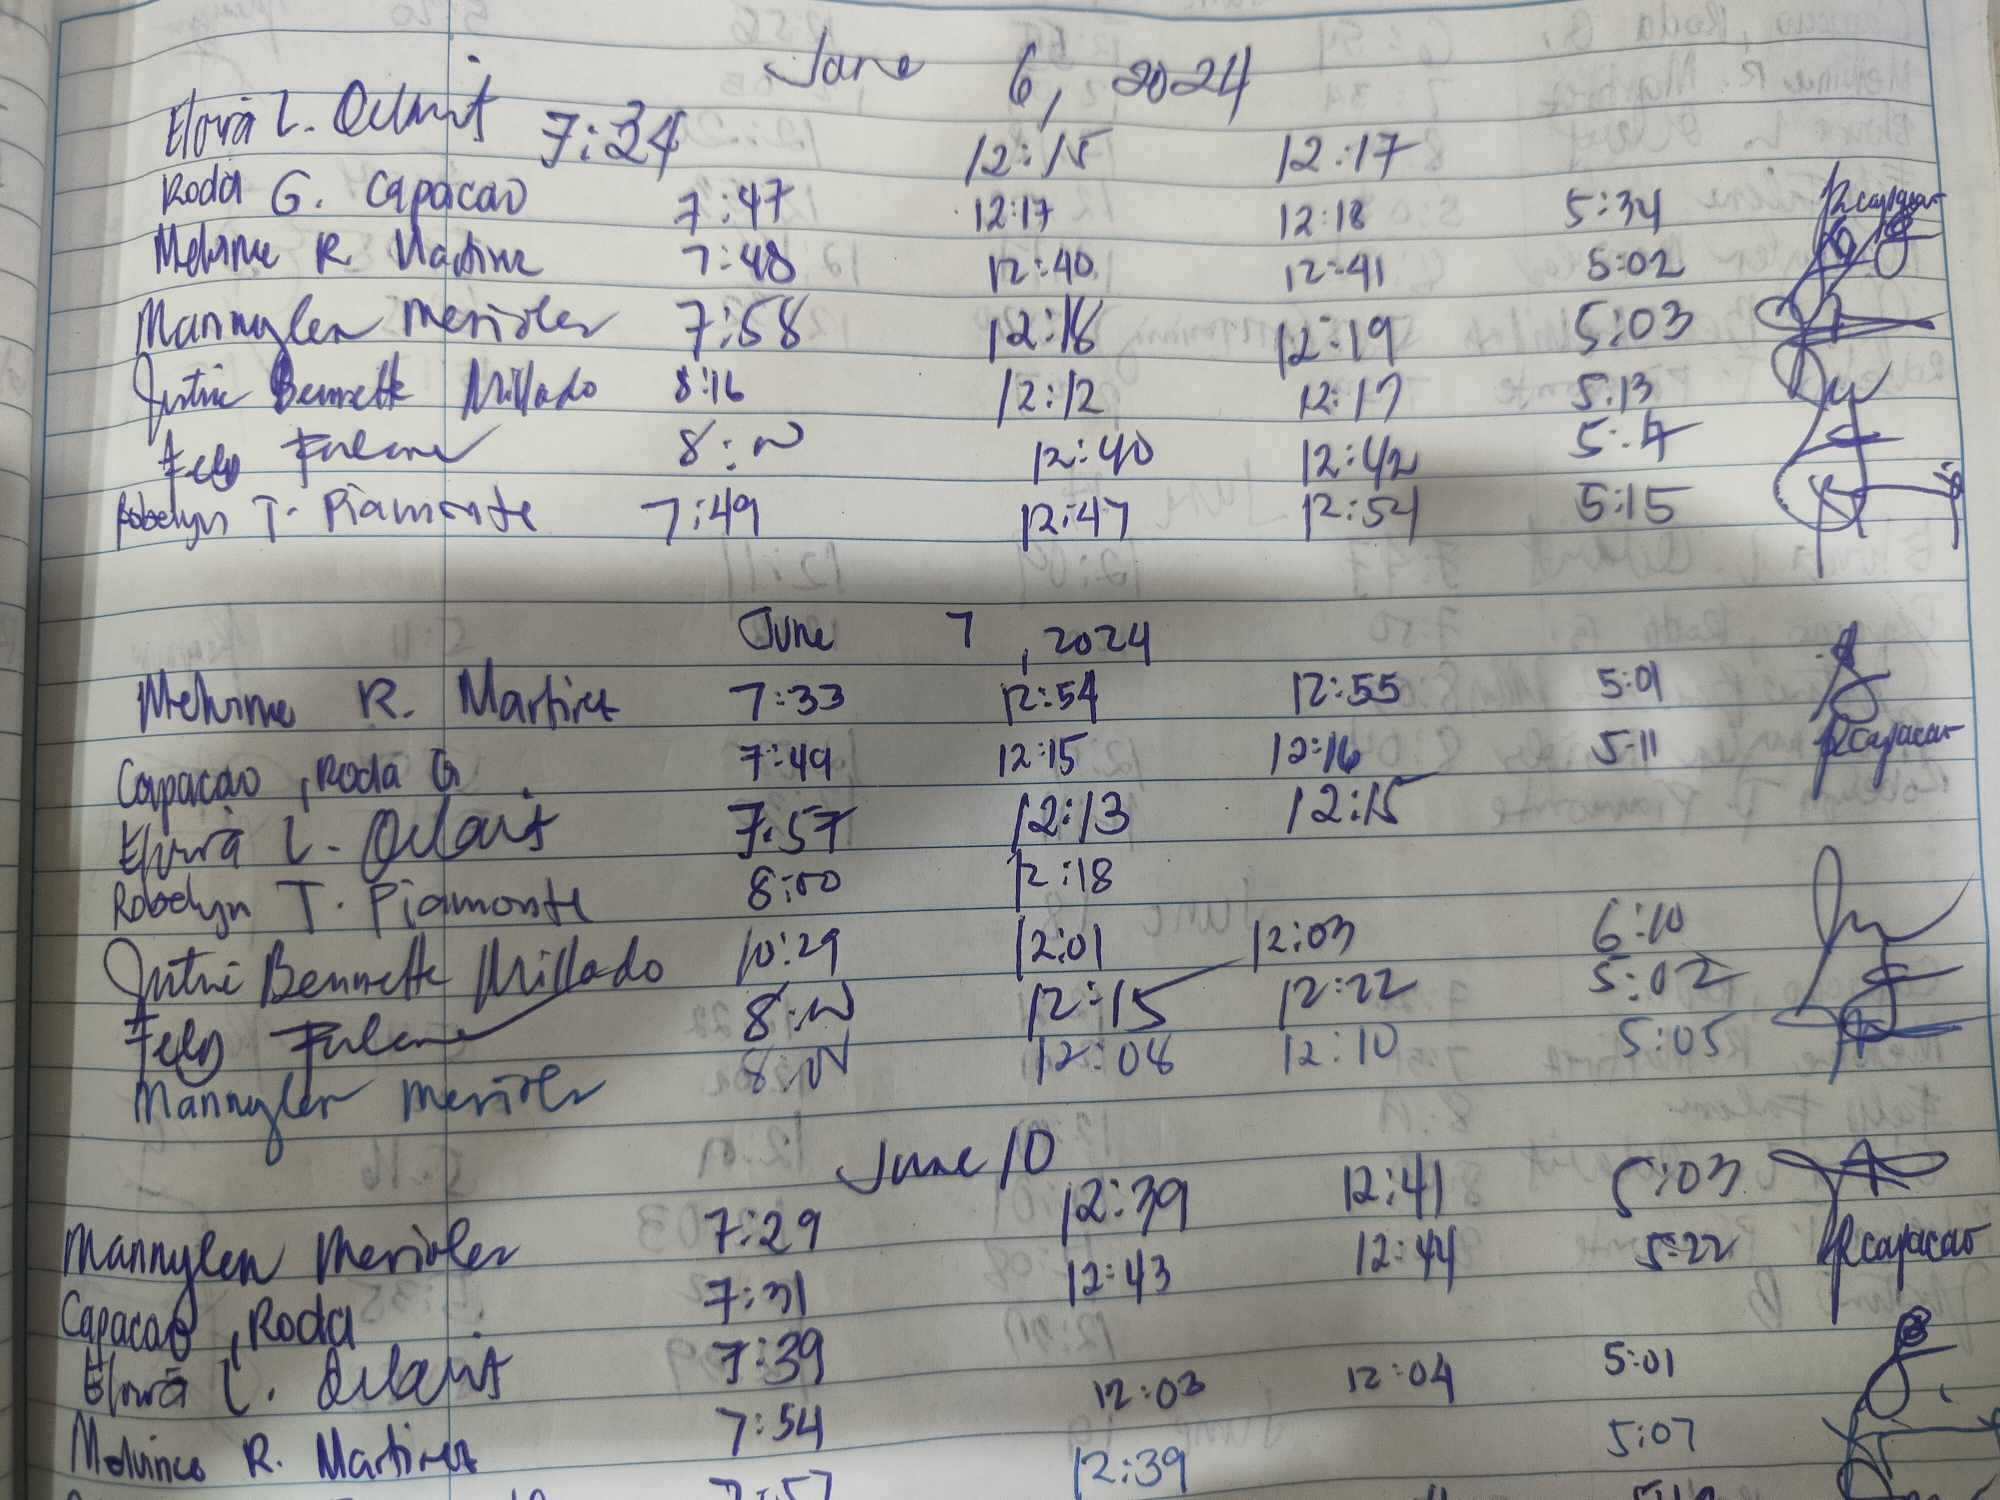 June 6, 2024
Elvira L. 7:34 12:15 12:17
Roda G. Capacao 7:47 12:17 12:18 5:34 RCapacao
Melvine R. 7:48 12:40 12:41 5:02
Mannylen Merioles 7:58 12:18 12:19 5:03
Justine Bennette Millado 8:16 12:12 12:17 5:13
8:00 12:40 12:42
Robelyn T. Piamonte 7:49 12:47 12:54 5:15
June 7, 2024
Melvine R. Martinez 7:33 12:54 12:55 5:01
Capacao, Roda G. 7:49 12:15 12:16 5:11 RCapacao
Elvira L. 7:57 12:13 12:15
Robelyn T. Piamonte 8:00 12:18
Justine Bennette Millado 10:29 12:01 12:03 6:10
8:00 12:15 12:22 5:02
Mannylen Merioles 8:00 12:08 12:10 5:05
June 10
Mannylen Merioles 7:29 12:39 12:41 5:03
Capacao, Roda 7:31 12:43 12:44 5:22 RCapacao
Elvira L. 7:39
Melvine R. Martinez 7:54 12:03 12:04 5:01
7:57 12:39 5:07